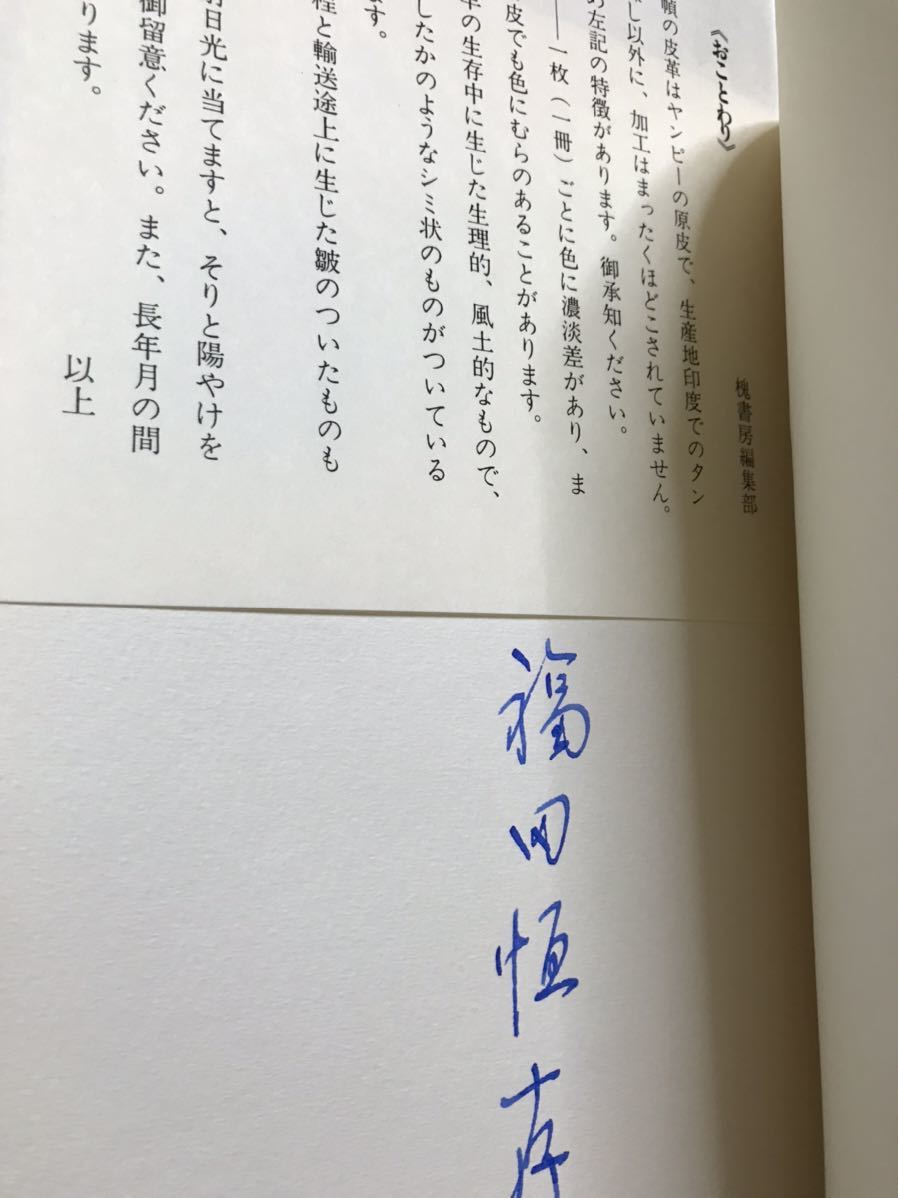 《おことわり》
槐書房編集部
幀の皮革はヤンピーの原皮で、生産地印度でのタン
し以外に、加工はまったくほどこされていません。
左記の特徴があります。御承知ください。
――一枚（一冊）ごとに色に濃淡差があり、ま
皮でも色にむらのあることがあります。
の生存中に生じた生理的、風土的なもので、
したかのようなシミ状のものがついている
す。
程と輸送途上に生じた皺のついたものも
日光に当てますと、そりと陽やけを
御留意ください。また、長年月の間
ります。
以上
福田恆存